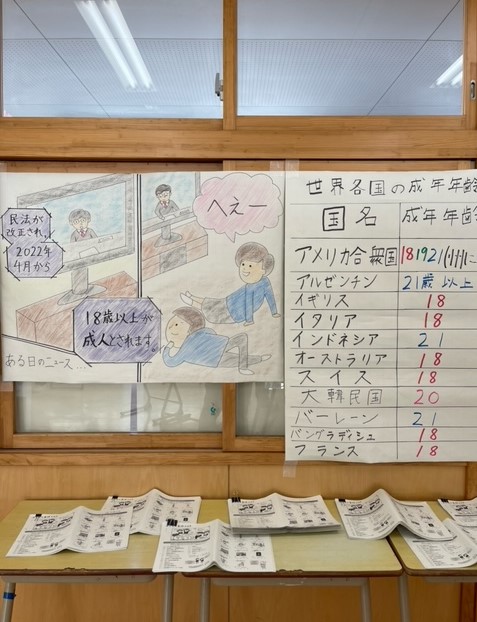 民法が
改正され、
2022年
4月から
18歳以上が
成人とされます。
ある日のニュース...
へぇー
世界各国の成年年齢
国名 成年年齢
アメリカ合衆国 18 19 21
アルゼンチン 21歳以上
イギリス 18
イタリア 18
インドネシア 21
オーストラリア 18
スイス 18
大韓民国 20
バーレーン 21
バングラディシュ 18
フランス 18